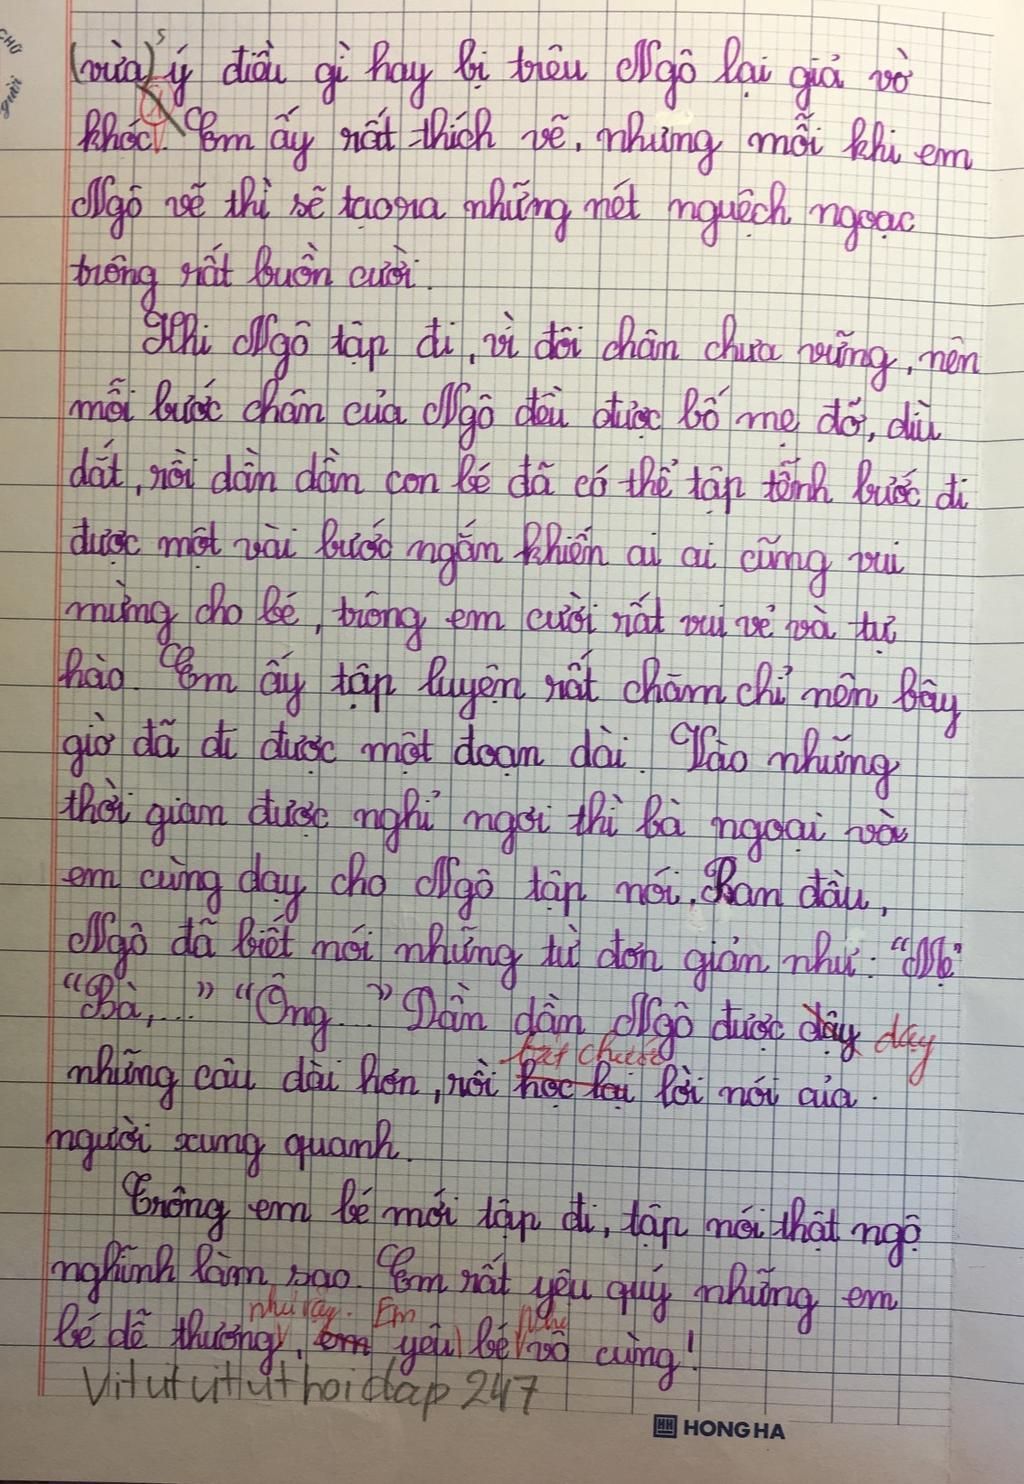 CHỮ
người
(vừa) ý điều gì hay bị trêu Ngô lại giả vờ
khóc. Em ấy rất thích vẽ, nhưng mỗi khi em
Ngô vẽ thì sẽ tạo ra những nét nguệch ngoạc
trông rất buồn cười.
Khi Ngô tập đi, vì đôi chân chưa vững, nên
mỗi bước chân của Ngô đều được bố mẹ đỡ, dìu
dắt, rồi dần dần con bé đã có thể tập tễnh bước đi
được một vài bước ngắn khiến ai ai cũng vui
mừng cho bé, trông em cười rất vui vẻ và tự
hào. Em ấy tập luyện rất chăm chỉ nên bây
giờ đã đi được một đoạn dài. Vào những
thời gian được nghỉ ngơi thì bà ngoại và
em cùng dạy cho Ngô tập nói. Ban đầu,
Ngô đã biết nói những từ đơn giản như: "Mẹ"
"Bà,..." "Ông..." Dần dần Ngô được dậy dạy
bắt chước
những câu dài hơn, rồi học lại lời nói của
người xung quanh.
Trông em bé mới tập đi, tập nói thật ngộ
nghĩnh làm sao. Em rất yêu quý những em
như vậy. Em
bé dễ thương, em yêu bé vô cùng!
Vitutuituthoidap 247
HH HONG HA